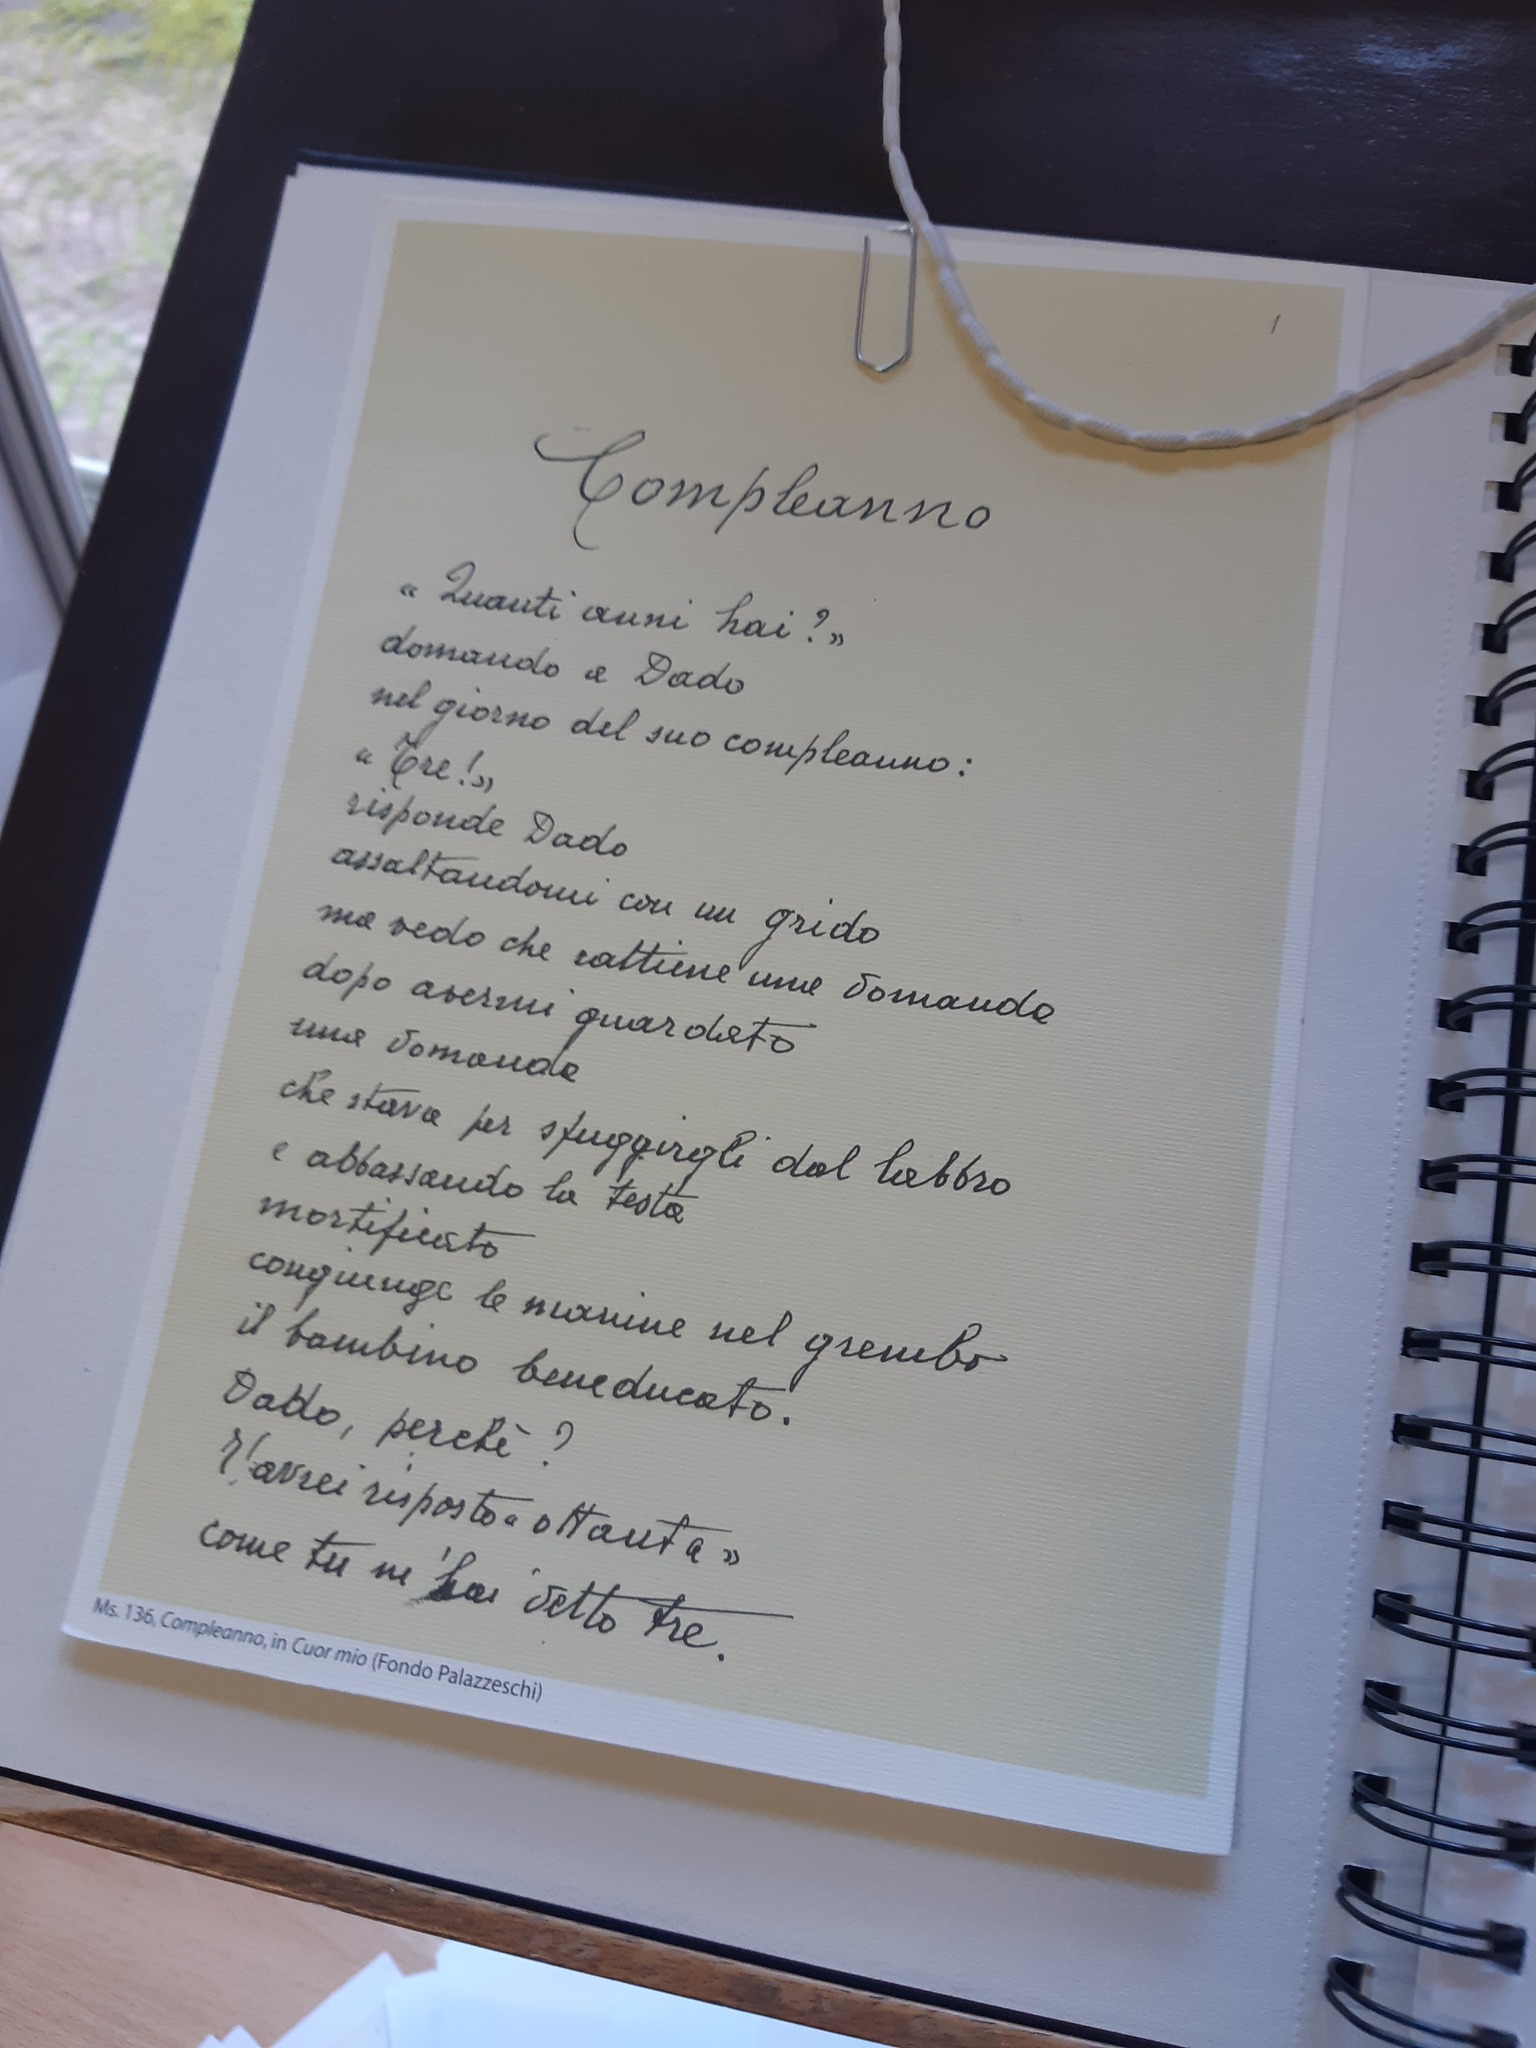 1
Compleanno
« Quanti anni hai ? »
domando a Dado
nel giorno del suo compleanno :
« Tre ! »
risponde Dado
assaltandomi con un grido
ma vedo che rattiene una domanda
dopo avermi guardato
una domanda
che stava per sfuggirgli dal labbro
e abbassando la testa
mortificato
congiunge le manine nel grembo
il bambino beneducato.
Dado, perchè ?
T'avrei risposto « ottanta »
come tu m'hai detto tre.
Ms. 136, Compleanno, in Cuor mio (Fondo Palazzeschi)